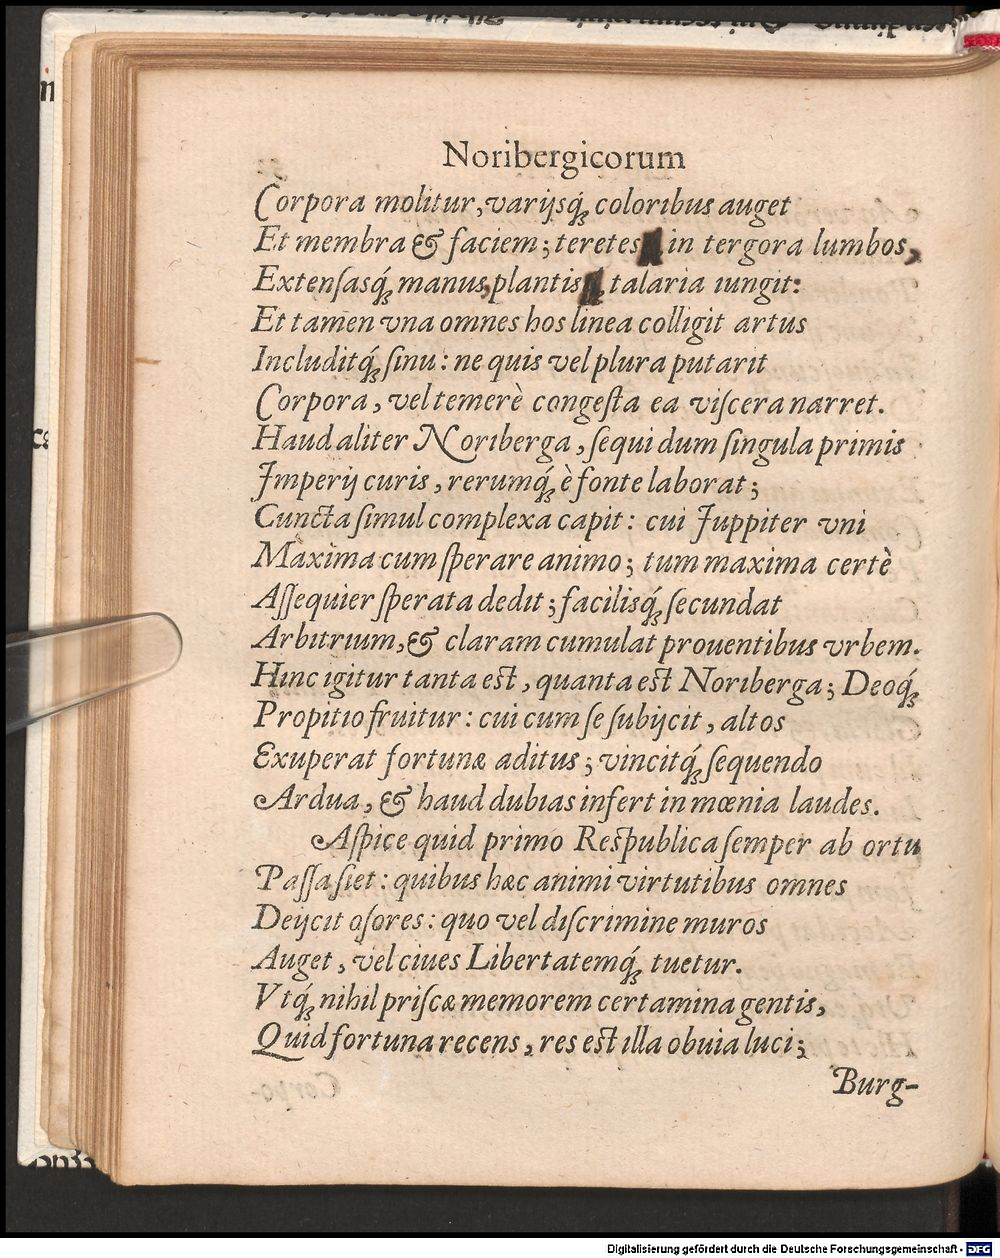 Noribergicorum
Corpora molitur, varijsq́; coloribus auget
Et membra & faciem; teretes in tergora lumbos,
Extensasq́; manus, plantis talaria iungit:
Et tamen vna omnes hos linea colligit artus
Includitq́; sinu: ne quis vel plura putarit
Corpora, vel temerè congesta ea viscera narret.
Haud aliter Noriberga, sequi dum singula primis
Imperij curis, rerumq́; è fonte laborat;
Cuncta simul complexa capit: cui Iuppiter vni
Maxima cum sperare animo; tum maxima certè
Assequier sperata dedit; facilisq́; secundat
Arbitrium, & claram cumulat prouentibus vrbem.
Hinc igitur tanta est, quanta est Noriberga; Deoq́;
Propitio fruitur: cui cum se subijcit, altos
Exuperat fortunæ aditus; vincitq́; sequendo
Ardua, & haud dubias infert in mœnia laudes.
Aspice quid primo Respublica semper ab ortu
Passa siet: quibus hæc animi virtutibus omnes
Deijcit osores: quo vel discrimine muros
Auget, vel ciues Libertatemq́; tuetur.
Vtq́; nihil priscæ memorem certamina gentis,
Quid fortuna recens, res est illa obuia luci;
Burg-
Digitalisierung gefördert durch die Deutsche Forschungsgemeinschaft - DFG